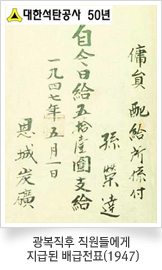 대한석탄공사 50년
傭員 配給所係付
孫榮達
自今日給五拾壹圓支給
一九四七年五月一日
恩城炭礦
광복직후 직원들에게
지급된 배급전표(1947)